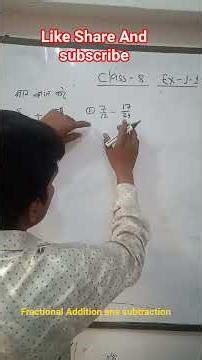 Like Share And
subscribe
Class-8 Ex-1.1
मान ज्ञात करें
② 7/12 - 17/24
Fractional Addition ans subtraction